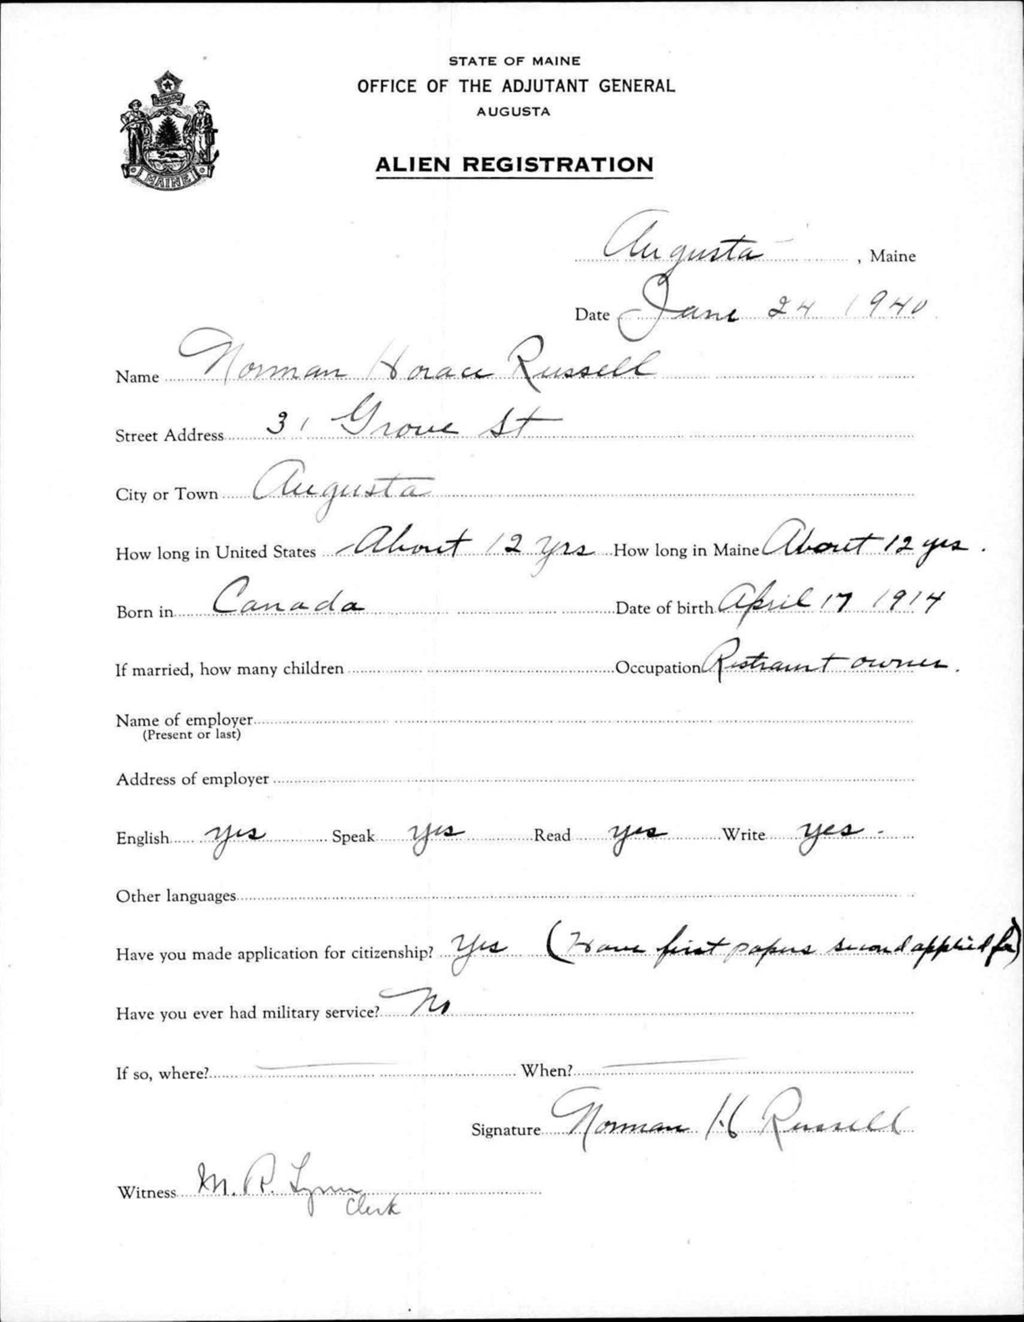 STATE OF MAINE
OFFICE OF THE ADJUTANT GENERAL
AUGUSTA
ALIEN REGISTRATION
MAINE
Augusta, Maine
Date June 24 1940
Name Norman Horace Russell
Street Address 31 Grove St
City or Town Augusta
How long in United States About 12 yrs How long in Maine About 12 yrs.
Born in Canada Date of birth April 17 1914
If married, how many children Occupation Restraunt owner.
Name of employer
(Present or last)
Address of employer
English yes Speak yes Read yes Write yes -
Other languages
Have you made application for citizenship? Yes (Have first papers second applied for)
Have you ever had military service? No
If so, where? — When? —
Signature Norman H Russell
Witness M. R. Lynn
Clerk